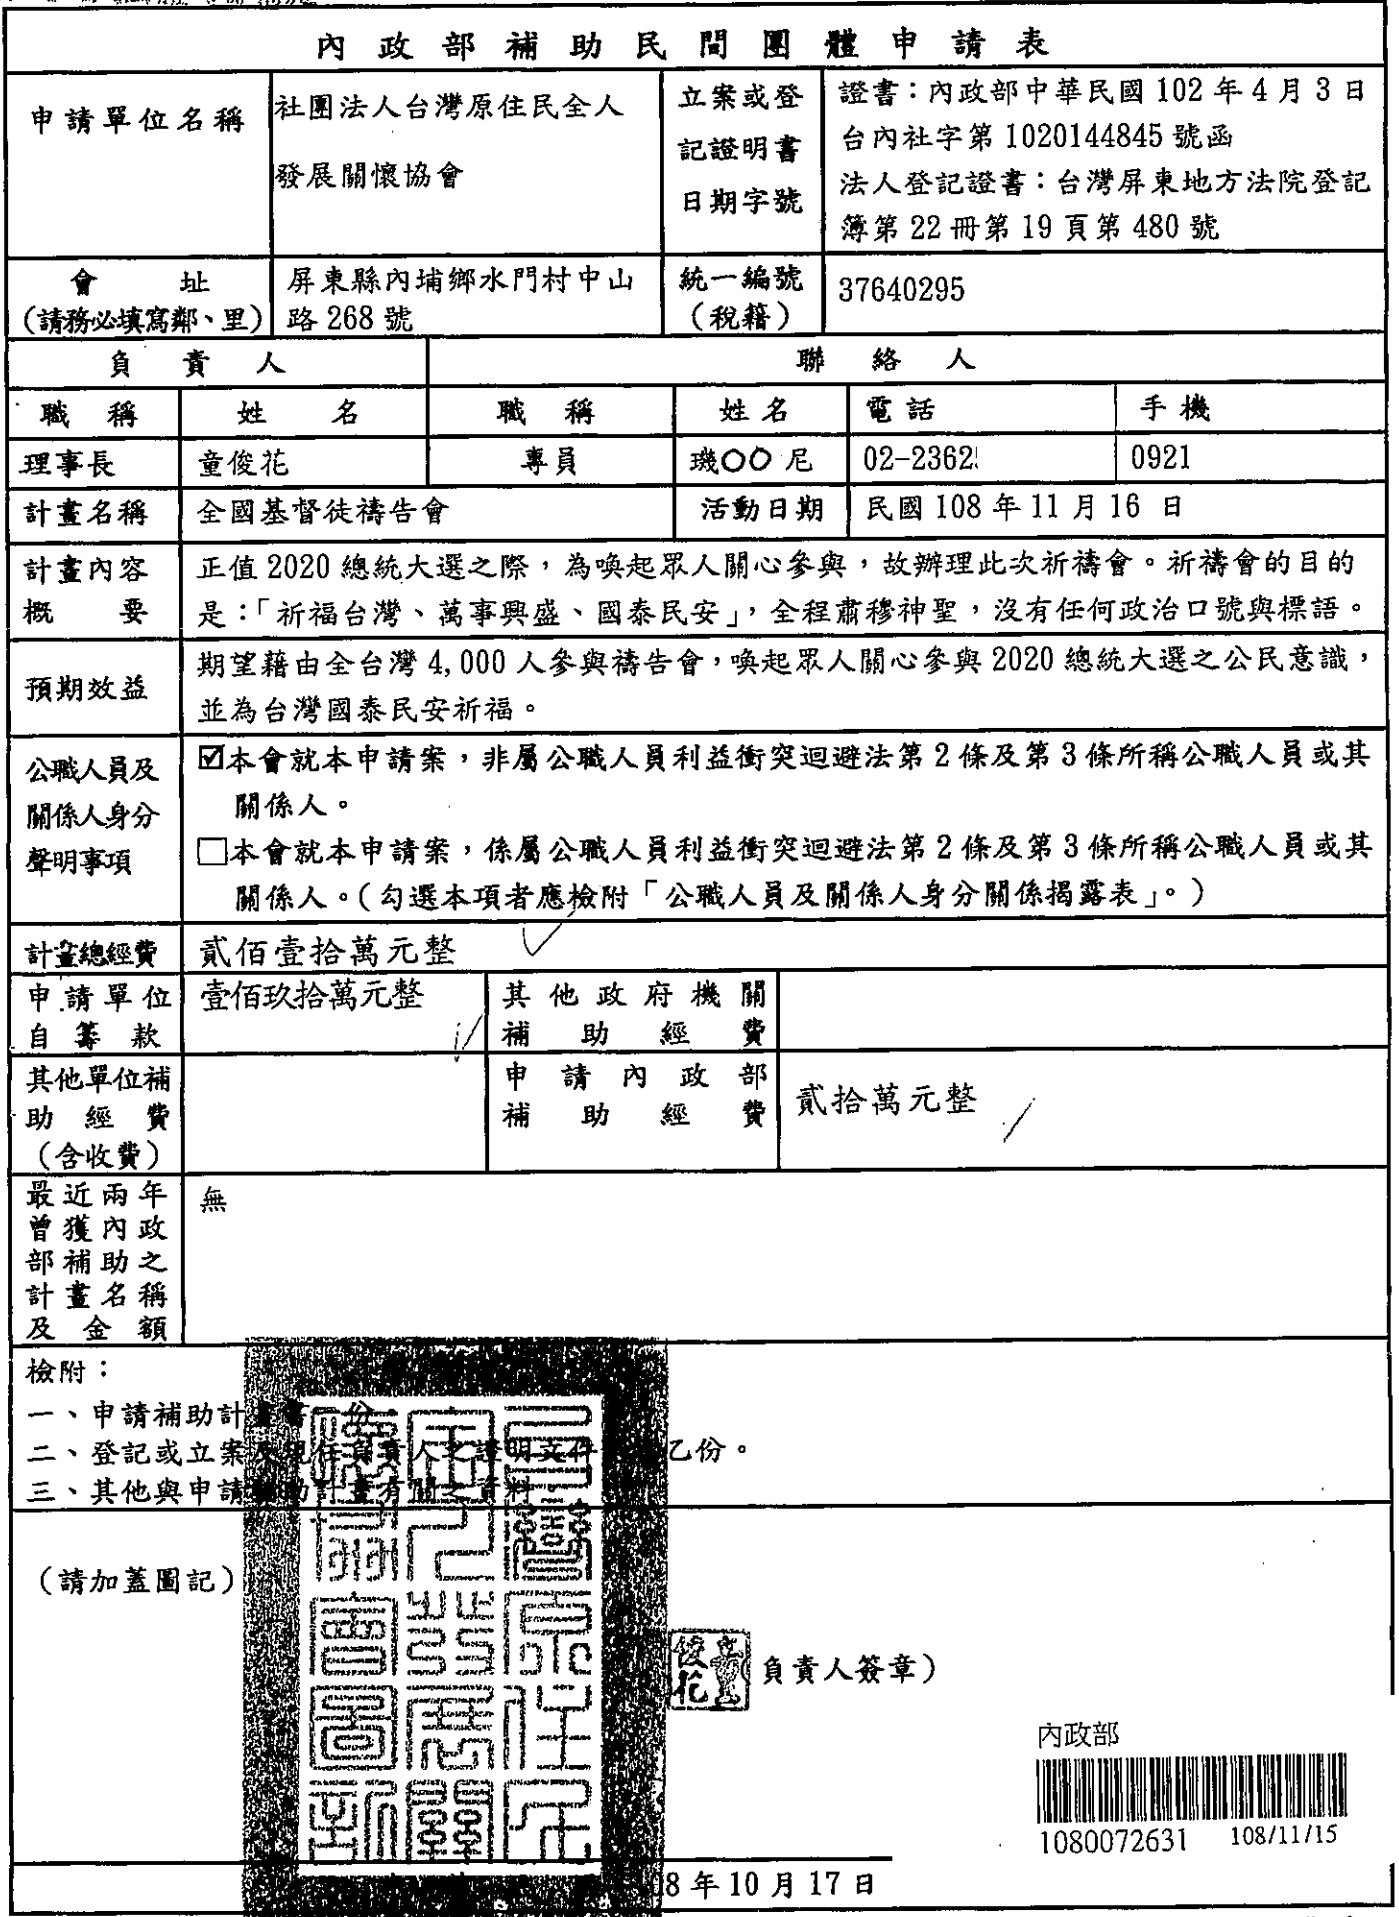 內政部補助民間團體申請表
申請單位名稱
社團法人台灣原住民全人
發展關懷協會
立案或登
記證明書
日期字號
證書：內政部中華民國 102 年 4 月 3 日
台內社字第 1020144845 號函
法人登記證書：台灣屏東地方法院登記
簿第 22 冊第 19 頁第 480 號
會 址
(請務必填寫鄰、里)
屏東縣內埔鄉水門村中山
路 268 號
統一編號
(稅籍)
37640295
負 責 人
聯 絡 人
職 稱
姓 名
職 稱
姓 名
電 話
手 機
理事長
童俊花
專員
璣〇〇尼
02-2362
0921
計畫名稱
全國基督徒禱告會
活動日期
民國 108 年 11 月 16 日
計畫內容
概 要
正值 2020 總統大選之際，為喚起眾人關心參與，故辦理此次祈禱會。祈禱會的目的
是：「祈福台灣、萬事興盛、國泰民安」，全程肅穆神聖，沒有任何政治口號與標語。
預期效益
期望藉由全台灣 4,000 人參與禱告會，喚起眾人關心參與 2020 總統大選之公民意識，
並為台灣國泰民安祈福。
公職人員及
關係人身分
聲明事項
☑本會就本申請案，非屬公職人員利益衝突迴避法第 2 條及第 3 條所稱公職人員或其
關係人。
□本會就本申請案，係屬公職人員利益衝突迴避法第 2 條及第 3 條所稱公職人員或其
關係人。(勾選本項者應檢附「公職人員及關係人身分關係揭露表」。)
計畫總經費
貳佰壹拾萬元整
申請單位
自籌款
壹佰玖拾萬元整
其他政府機關
補助經費
其他單位補
助經費
(含收費)
申請內政部
補助經費
貳拾萬元整
最近兩年
曾獲內政
部補助之
計畫名稱
及金額
無
檢附：
一、申請補助計畫書一份
二、登記或立案及現任負責人之證明文件乙份。
三、其他與申請補助計畫有關之資料
(請加蓋圖記)
俊花
負責人簽章)
內政部
1080072631 108/11/15
8 年 10 月 17 日